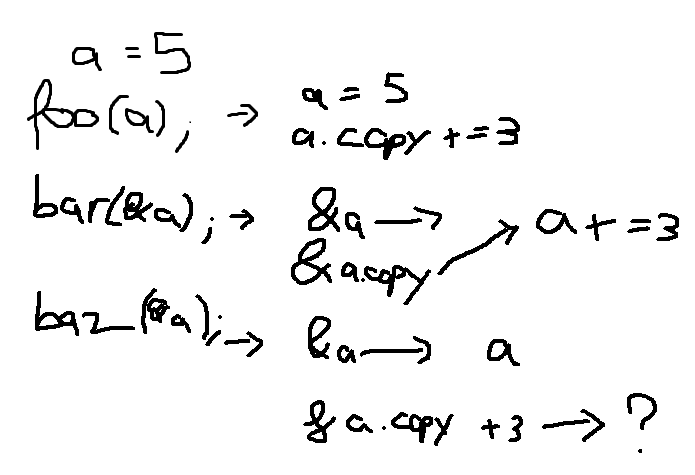 a = 5
foo(a); → a = 5
a.copy += 3
bar(&a); → &a →
&a.copy → a += 3
baz(&a); → &a → a
&a.copy +3 → ?